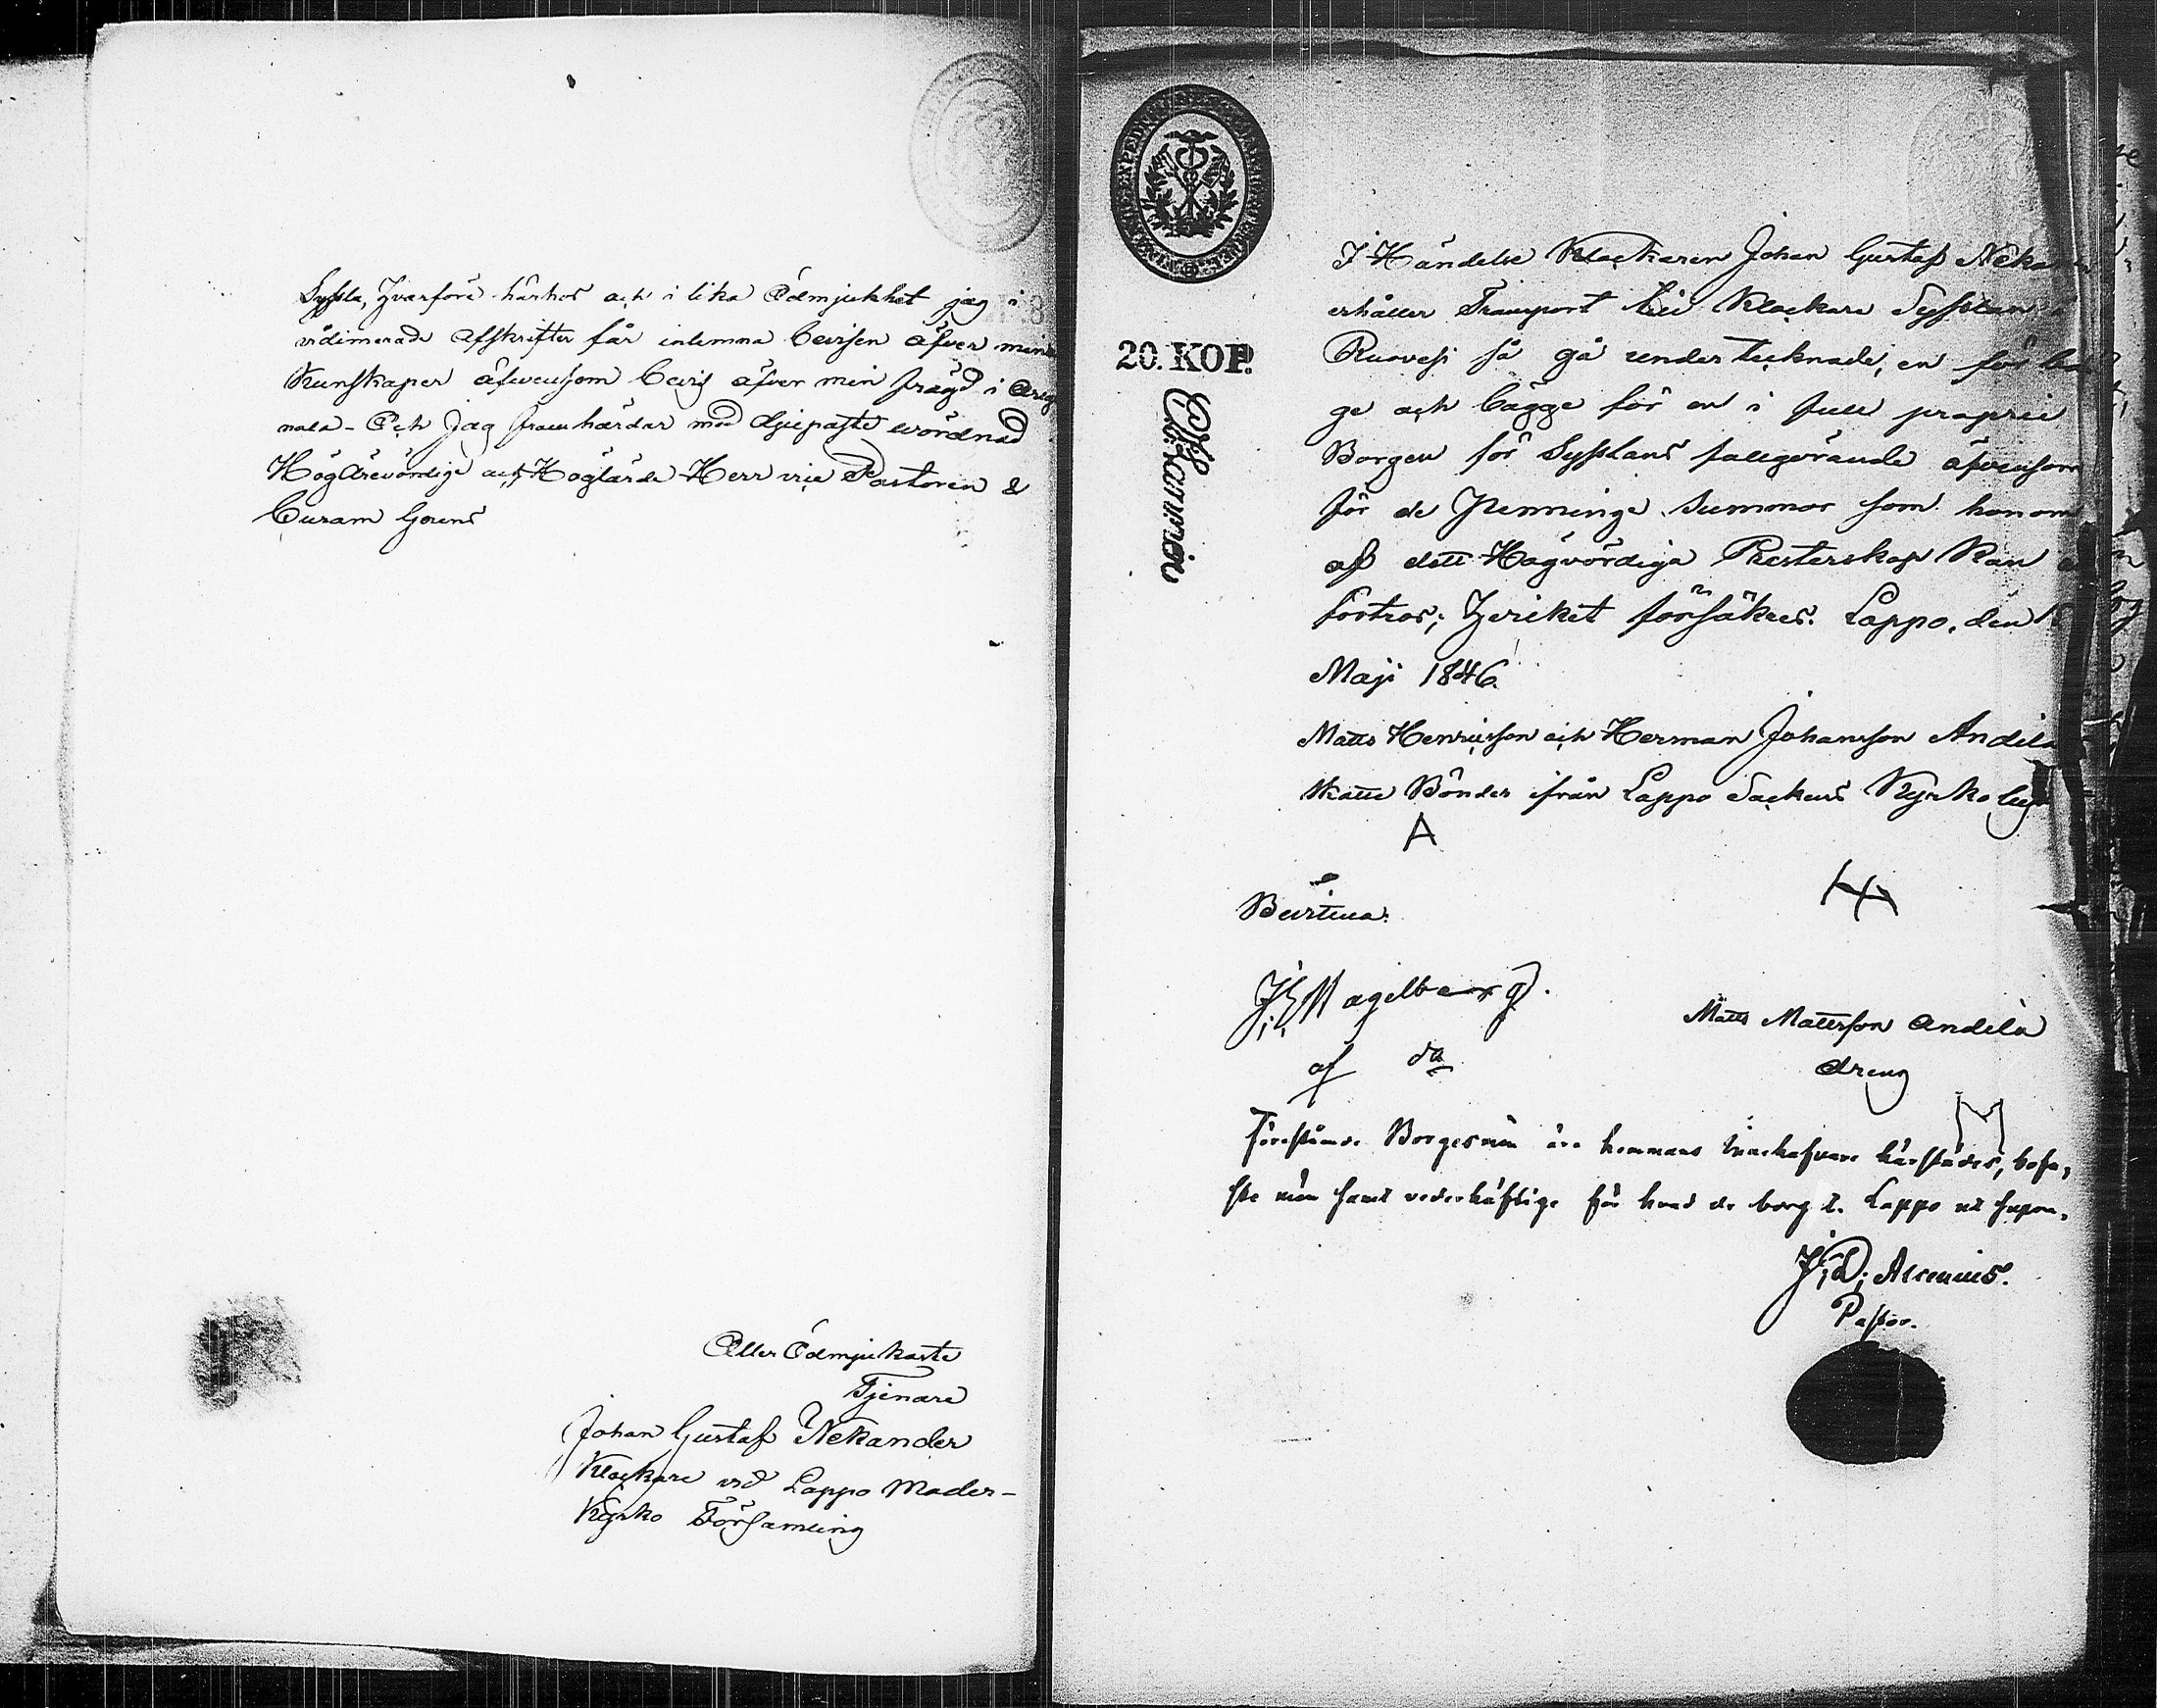 Syssla, hvarföre härhos och i lika Ödmjukhet jag i
vidimerade Afskrifter får inlemna Bevisen äfver mina
Kunskaper äfvensom Bevis äfver min frägd i Orig
nala - Och jag framhärdar med djupaste wördnad
HögÄrevördige och Höglärde Herr vice Pastoren &
Curam Gerens
Aller Ödmjukaste
Tjenare
Johan Gustaf Nekander
Klockare vid Lappo Moder-
Kyrko Församling
20. KOP.
I Händelse Klockaren Johan Gustaf Nekander
erhåller Transport till Klockare Sysslan i
Ruovesi så gå undertecknade, en för bä
ge och bägge för en i full proprie
Borgen för Sysslans fullgörande äfvensom
för de Penninge Summor som honom
af dett Högvördiga Presterskap kan
förtros; hvilket försäkras. Lappo, den
Maji 1846.
Matts Henricsson och Herman Johansson Andila
Skatte Bönder ifrån Lappo Sockens Kyrko by
A
H
Bevittna:
Nagelberg.
af
Matts Mattsson Andila
dreng
M
Förestående Borgesmän äro hemmans innehafvare härstädes, bofa,
ste män samt vederhäftige för hvad de borgat. Lappo ut supra.
J. D. Alcenius.
Pastor.